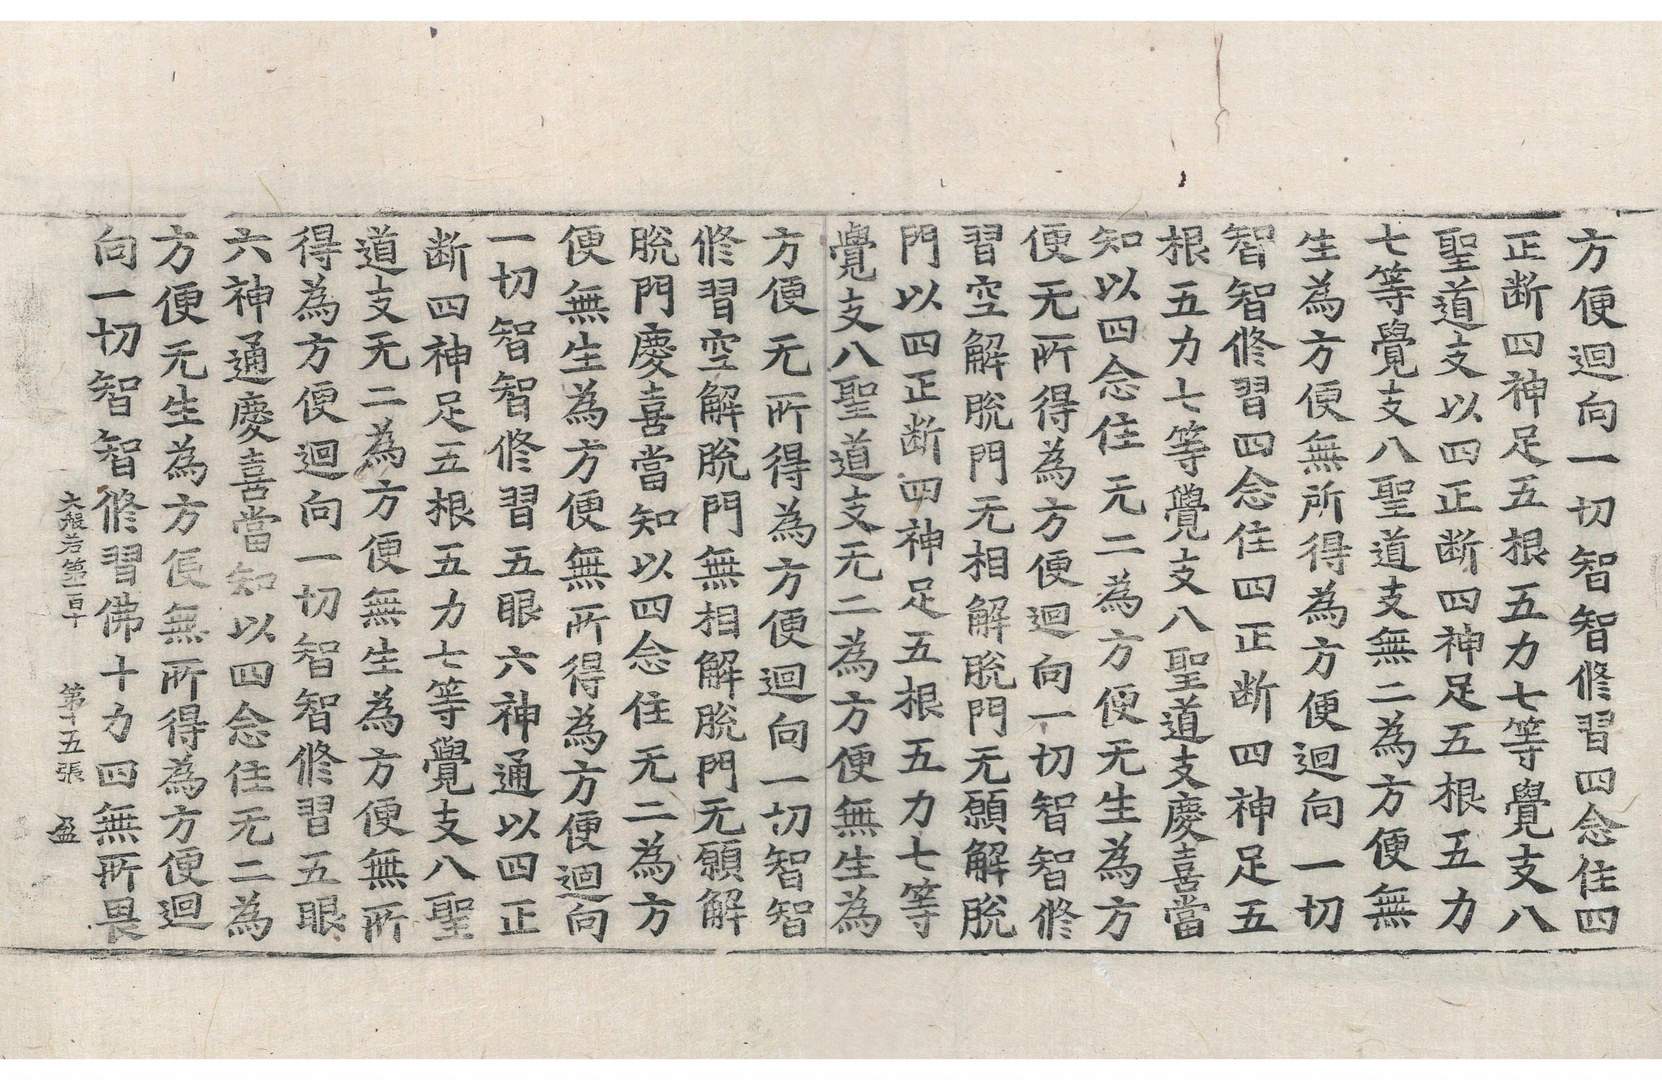 方便迴向一切智智修習四念住四
正断四神足五根五力七等覺支八
聖道支以四正断四神足五根五力
七等覺支八聖道支無二為方便無
生為方便無所得為方便迴向一切
智智修習四念住四正断四神足五
根五力七等覺支八聖道支慶喜當
知以四念住无二為方便无生為方
便无所得為方便迴向一切智智修
習空解脫門无相解脫門无願解脫
門以四正断四神足五根五力七等
覺支八聖道支无二為方便無生為
方便无所得為方便迴向一切智智
修習空解脫門無相解脫門无願解
脫門慶喜當知以四念住无二為方
便無生為方便無所得為方便迴向
一切智智修習五眼六神通以四正
断四神足五根五力七等覺支八聖
道支无二為方便無生為方便無所
得為方便迴向一切智智修習五眼
六神通慶喜當知以四念住无二為
方便无生為方便無所得為方便迴
向一切智智修習佛十力四無所畏
大般若第一百十 第十五張 盈